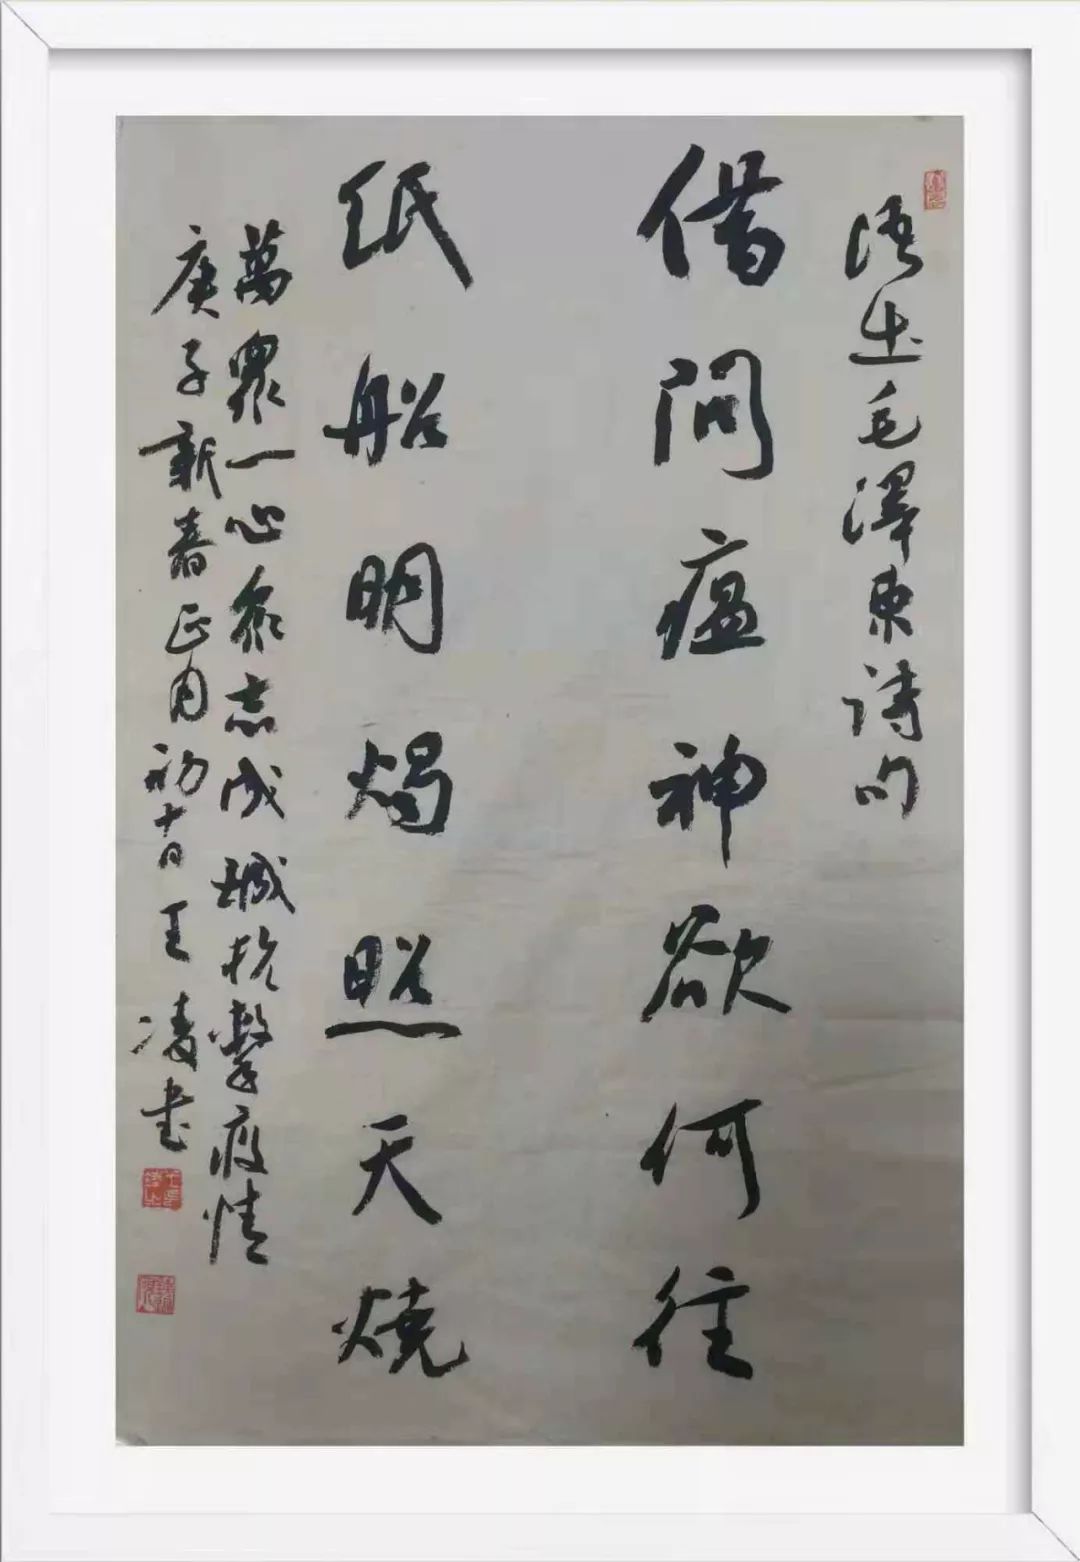 毛澤東詩句
借問瘟神欲何往
紙船明燭照天燒
萬眾一心衆志成城抗擊疫情
庚子新春正月初十日王凌書